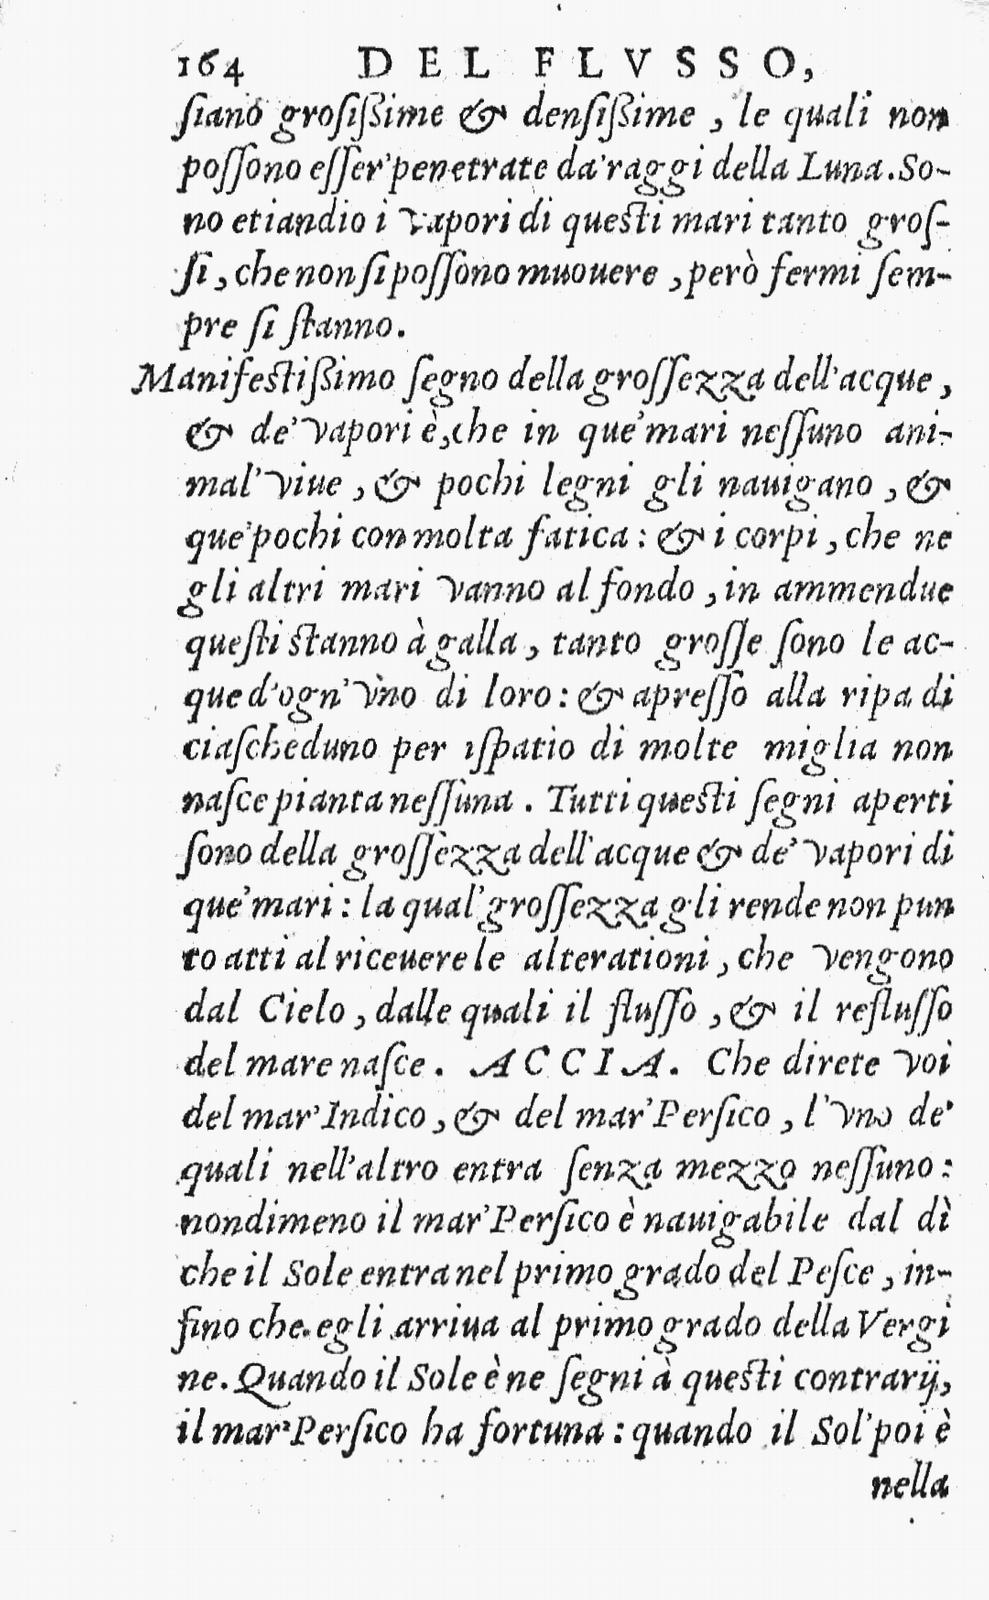 164 DEL FLVSSO,
ſiano groſiſßime & denſiſßime, le quali non
poſſono eſſer' penetrate da' raggi della Luna. So-
no etiandio i vapori di queſti mari tanto groſ-
ſi, che non ſi poſſono muouere, però fermi ſem-
pre ſi ſtanno.
Manifeſtiſßimo ſegno della groſſezza dell'acque,
& de' vapori è, che in que' mari neſſuno ani-
mal' viue, & pochi legni gli nauigano, &
que' pochi con molta fatica: & i corpi, che ne
gli altri mari vanno al fondo, in ammendue
queſti ſtanno à galla, tanto groſſe ſono le ac-
que d'ogn' vno di loro: & apreſſo alla ripa di
ciaſcheduno per iſpatio di molte miglia non
naſce pianta neſſuna. Tutti queſti ſegni aperti
ſono della groſſezza dell'acque & de' vapori di
que' mari: la qual' groſſezza gli rende non pun
to atti al riceuere le alterationi, che vengono
dal Cielo, dalle quali il fluſſo, & il refluſſo
del mare naſce. ACCIA. Che direte voi
del mar' Indico, & del mar' Perſico, l'vno de'
quali nell'altro entra ſenza mezzo neſſuno:
nondimeno il mar' Perſico è nauigabile dal dì
che il Sole entra nel primo grado del Peſce, in-
fino che egli arriua al primo grado della Vergi
ne. Quando il Sole è ne ſegni à queſti contrarij,
il mar' Perſico ha fortuna: quando il Sol' poi è
nella